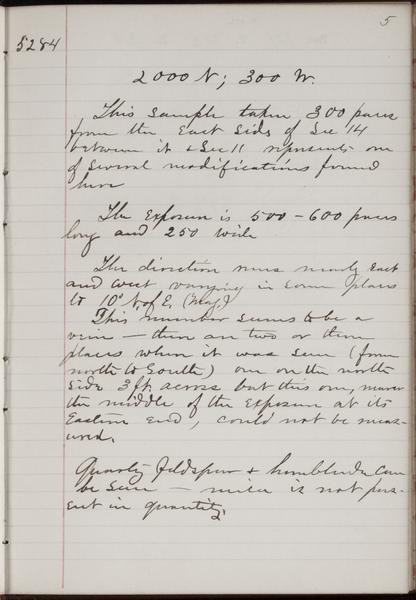 5
5284
2000 N; 300 W.
This sample taken 300 paces
from the East side of Sec 14
between it & Sec 11 represents one
of several modifications found
here
The Exposure is 500 - 600 paces
long and 250 wide
The direction runs nearly East
and West varying in some places
to 10° N. of E. (Mag.)
This number seems to be a
vein — there are two or three
places where it was seen (from
north to South) one on the north
side 3 ft. across but this one, nearer
the middle of the Exposure at its
Eastern End, could not be meas-
ured.
Quartz, feldspar & hornblende can
be seen — mica is not pres-
ent in quantity.